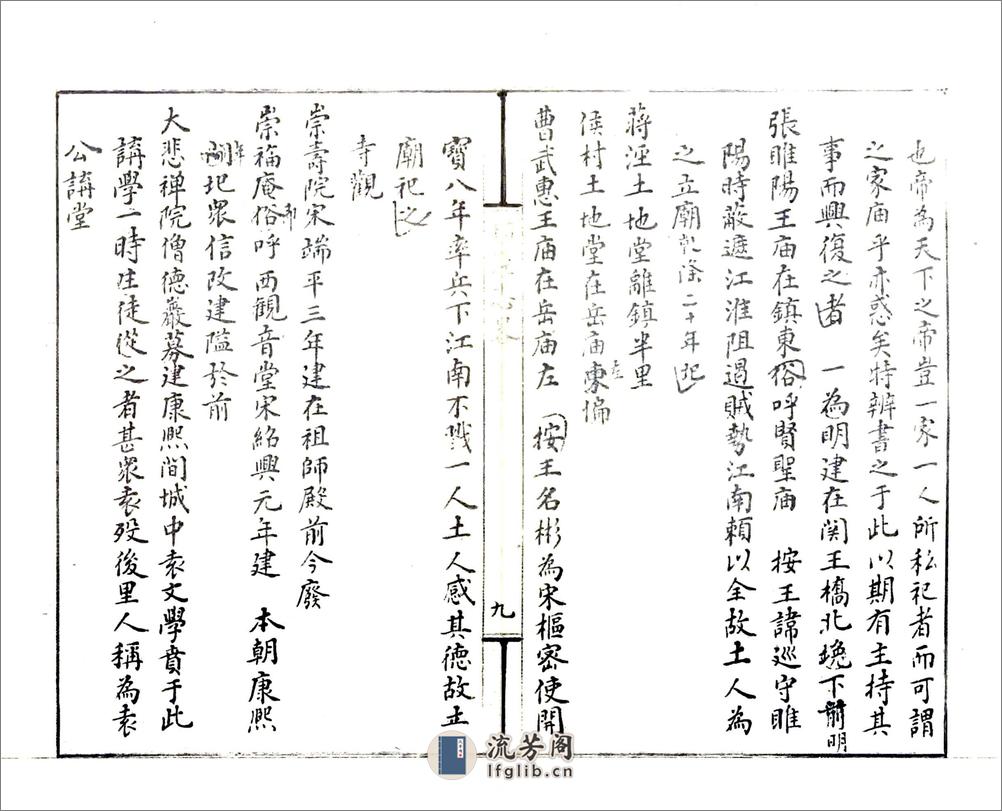 也帝為天下之帝豈一家一人所私祀者而可謂
之家庙乎亦惑矣特辨書之于此以期有主持其
事而興復之者　一為明建在関王橋北堍下前明
張睢陽王庙在鎮東俗呼賢聖庙　按王諱巡守睢
陽時蔽遮江淮阻遏賊勢江南頼以全故土人為
之立廟乾隆二十年圮
蔣涇土地堂離鎮半里
侯村土地堂在岳庙東偏
曹武惠王庙在岳庙左　按王名彬為宋樞密使開
九
寶八年率兵下江南不戮一人土人感其德故立
廟祀之
寺觀
崇壽院宋端平三年建在祖師殿前今廢
崇福庵俗呼西観音堂宋紹興元年建　本朝康熙
年圮眾信改建隘於前
大悲禅院僧德巖募建康熙間城中袁文學賁于此
講學一時生徒從之者甚眾袁歿後里人稱為袁
公講堂
流芳阁
lfglib.cn